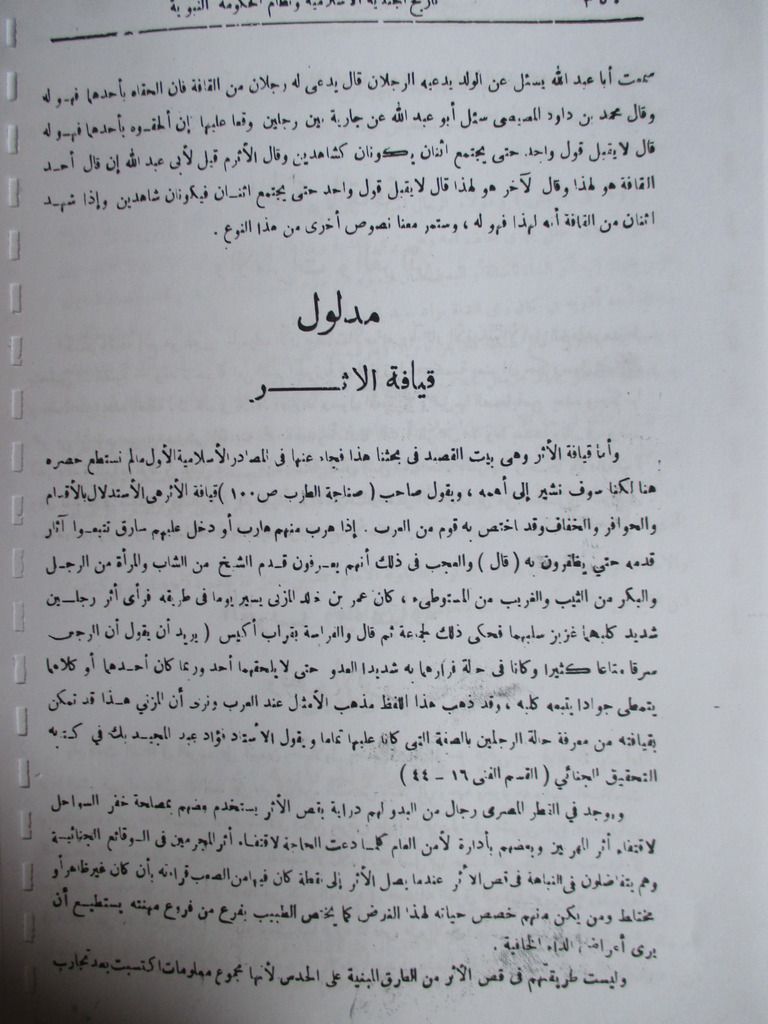 تاريخ الجندية الاسلامية ونظام الحكومة النبوية
سمعت أبا عبد الله يسئل عن الولد يدعيه الرجلان قال يدعى له رجلان من القافة فان الحقاه بأحدهما فهو له
وقال محمد بن داود المصيصى سئل أبو عبد الله عن جارية بين رجلين وقعا عليها إن ألحقوه بأحدهما فهو له
قال لا يقبل قول واحد حتى يجتمع اثنان يكونان كشاهدين وقال الأثرم قيل لأبى عبد الله إن قال أحد
القافة هو لهذا وقال لآخر هو لهذا قال لايقبل قول واحد حتى يجتمع اثنان فيكونان شاهدين وإذا شهد
اثنان من القافة أنه لهذا فهو له ، وستمر معنا نصوص أخرى من هذا النوع .
مدلول
قيافة الاثر
وأما قيافة الأثر وهى بيت القصيد فى بحثنا هذا فجاء عنها فى المصادر الأسلامية الأول مالم نستطع حصره
هنا لكنا سوف نشير إلى أهمه ، ويقول صاحب ( صناجة الطرب ص ١٠٠ ) قيافة الأثر هى الأستدلال بالأقدام
والحوافر والخفاف وقد اختص به قوم من العرب . إذا هرب منهم هارب أو دخل عليهم سارق تتبعوا آثار
قدمه حتي يظفرون به ( قال ) والعجب فى ذلك أنهم يعرفون قدم الشيخ من الشاب والمرأة من الرجل
والبكر من الثيب والغريب من المستوطىء ، كان عمر بن خالد المزنى يسير يوما فى طريقه فرأى أثر رجلين
شديد كلبهما عزيز سلبهما فحكى ذلك لجماعة ثم قال والفراسة بقراب أكيس ( يريد أن يقول أن الرجلين
سرقا متاعا كثيرا وكانا فى حالة فرارهما به شديدا العدو حتى لايلحقهما أحد وربما كان أحدهما أو كلاهما
يتمطى جوادا يتبعه كلبه ، وقد ذهب هذا اللفظ مذهب الأمثل عند العرب ونرى أن المزني هذا قد تمكن
بقيافته من معرفة حالة الرجلين بالصفة التى كانا عليها تماما ويقول الأستاذ فؤاد عبد المجيد بك في كتابه
التحقيق الجنائي ( القسم الفنى ١٦ – ٤٤ )
ويوجد في القطر المصرى رجال من البدو لهم دراية بقص الأثر يستخدم بعضهم بمصلحة خفر السواحل
لاقتفاء أثر المهربين وبعضهم بأدارة لأمن العام كلما دعت الحاجة لاقتفاء أثر المجرمين فى الوقائع الجنائية
وهم يتفاضلون فى النباهة فى قص الأثر عندما يصل الأثر إلى نقطة كان فيها من الصعب قراءته بأن كان غير ظاهر أو
مختلط ومن يكن منهم خصص حياته لهذا الغرض كما يختص الطبيب بفرع من فروع مهنته يستطيع أن
يرى أعراض الداء الخافية .
وليست طريقتهم فى قص الأثر من الطرق المبنية على الحدس لأنها مجموع معلومات اكتسبت بعد تجارب